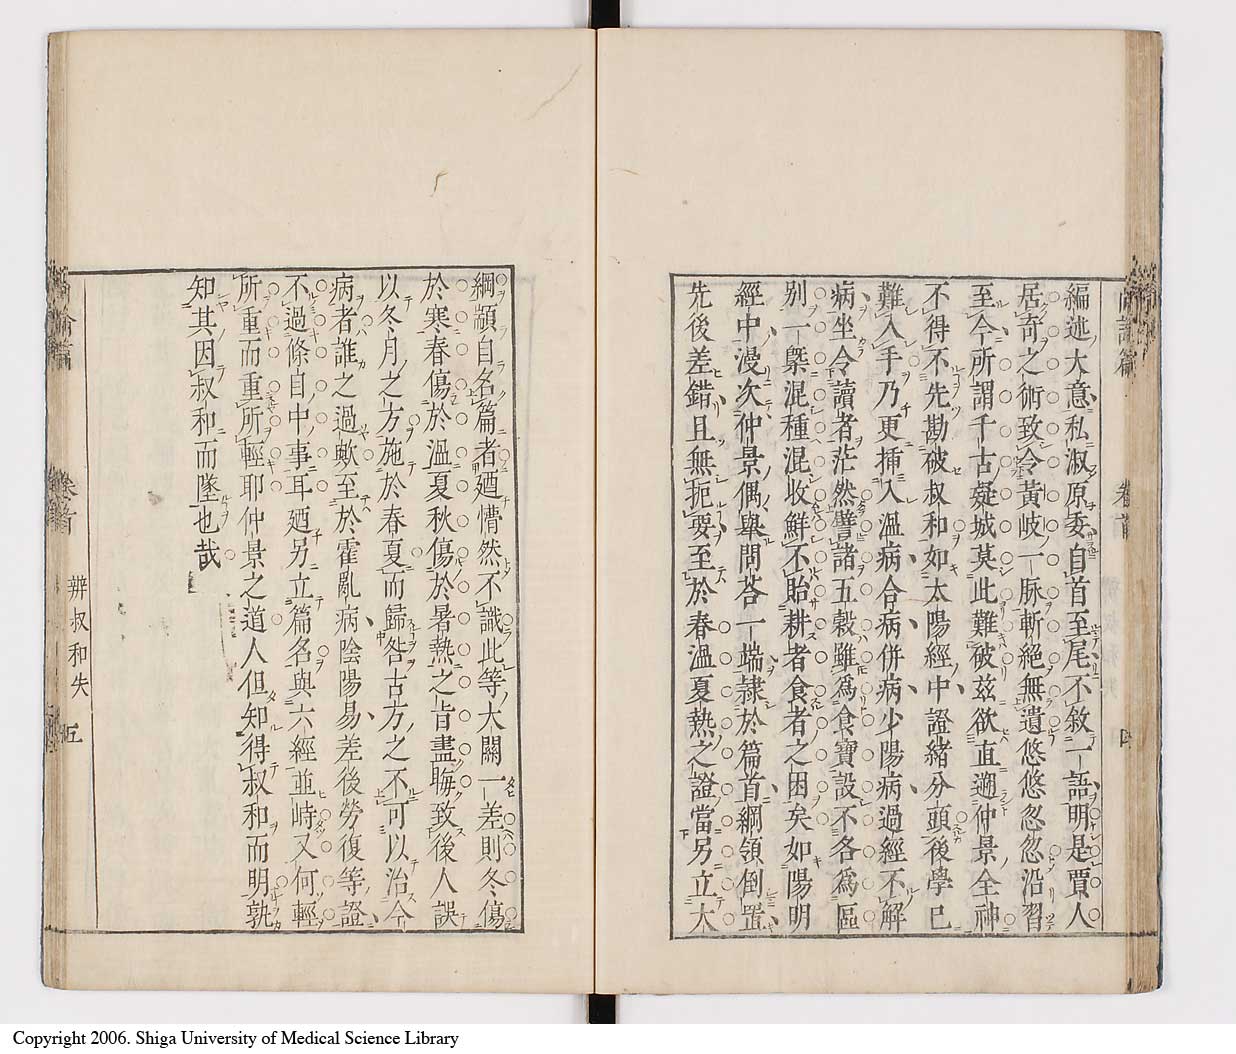 編述大意私淑原委自首至尾不敘一語明是賈人
居奇之術致令黃岐一脉斬絕無遺悠悠忽忽沿習
至今所謂千古疑城莫此難破茲欲直遡仲景全神
不得不先勘破叔和如太陽經中證緒分頭後學已
難入手乃更插入溫病合病併病少陽病過經不解
病坐令讀者茫然譬諸五穀雖爲食寶設不各爲區
別一槩混種混收鮮不貽耕者食者之困矣如陽明
經中漫次仲景偶舉問荅一端隷於篇首綱領倒置
先後差錯且無扼要至於春溫夏熱之證當另立大
綱顓自名篇者廼懵然不識此等大關一差則冬傷
於寒春傷於溫夏秋傷於暑熱之旨盡晦致後人誤
以冬月之方施於春夏而歸咎古方之不可以治今
病者誰之過歟至於霍亂病陰陽易差後勞復等證
不過條自中事耳廼另立篇名與六經並峙又何輕
所重而重所輕耶仲景之道人但知得叔和而明孰
知其因叔和而墜也哉
尚論篇 卷首 辨叔和失 五
Copyright 2006. Shiga University of Medical Science Library